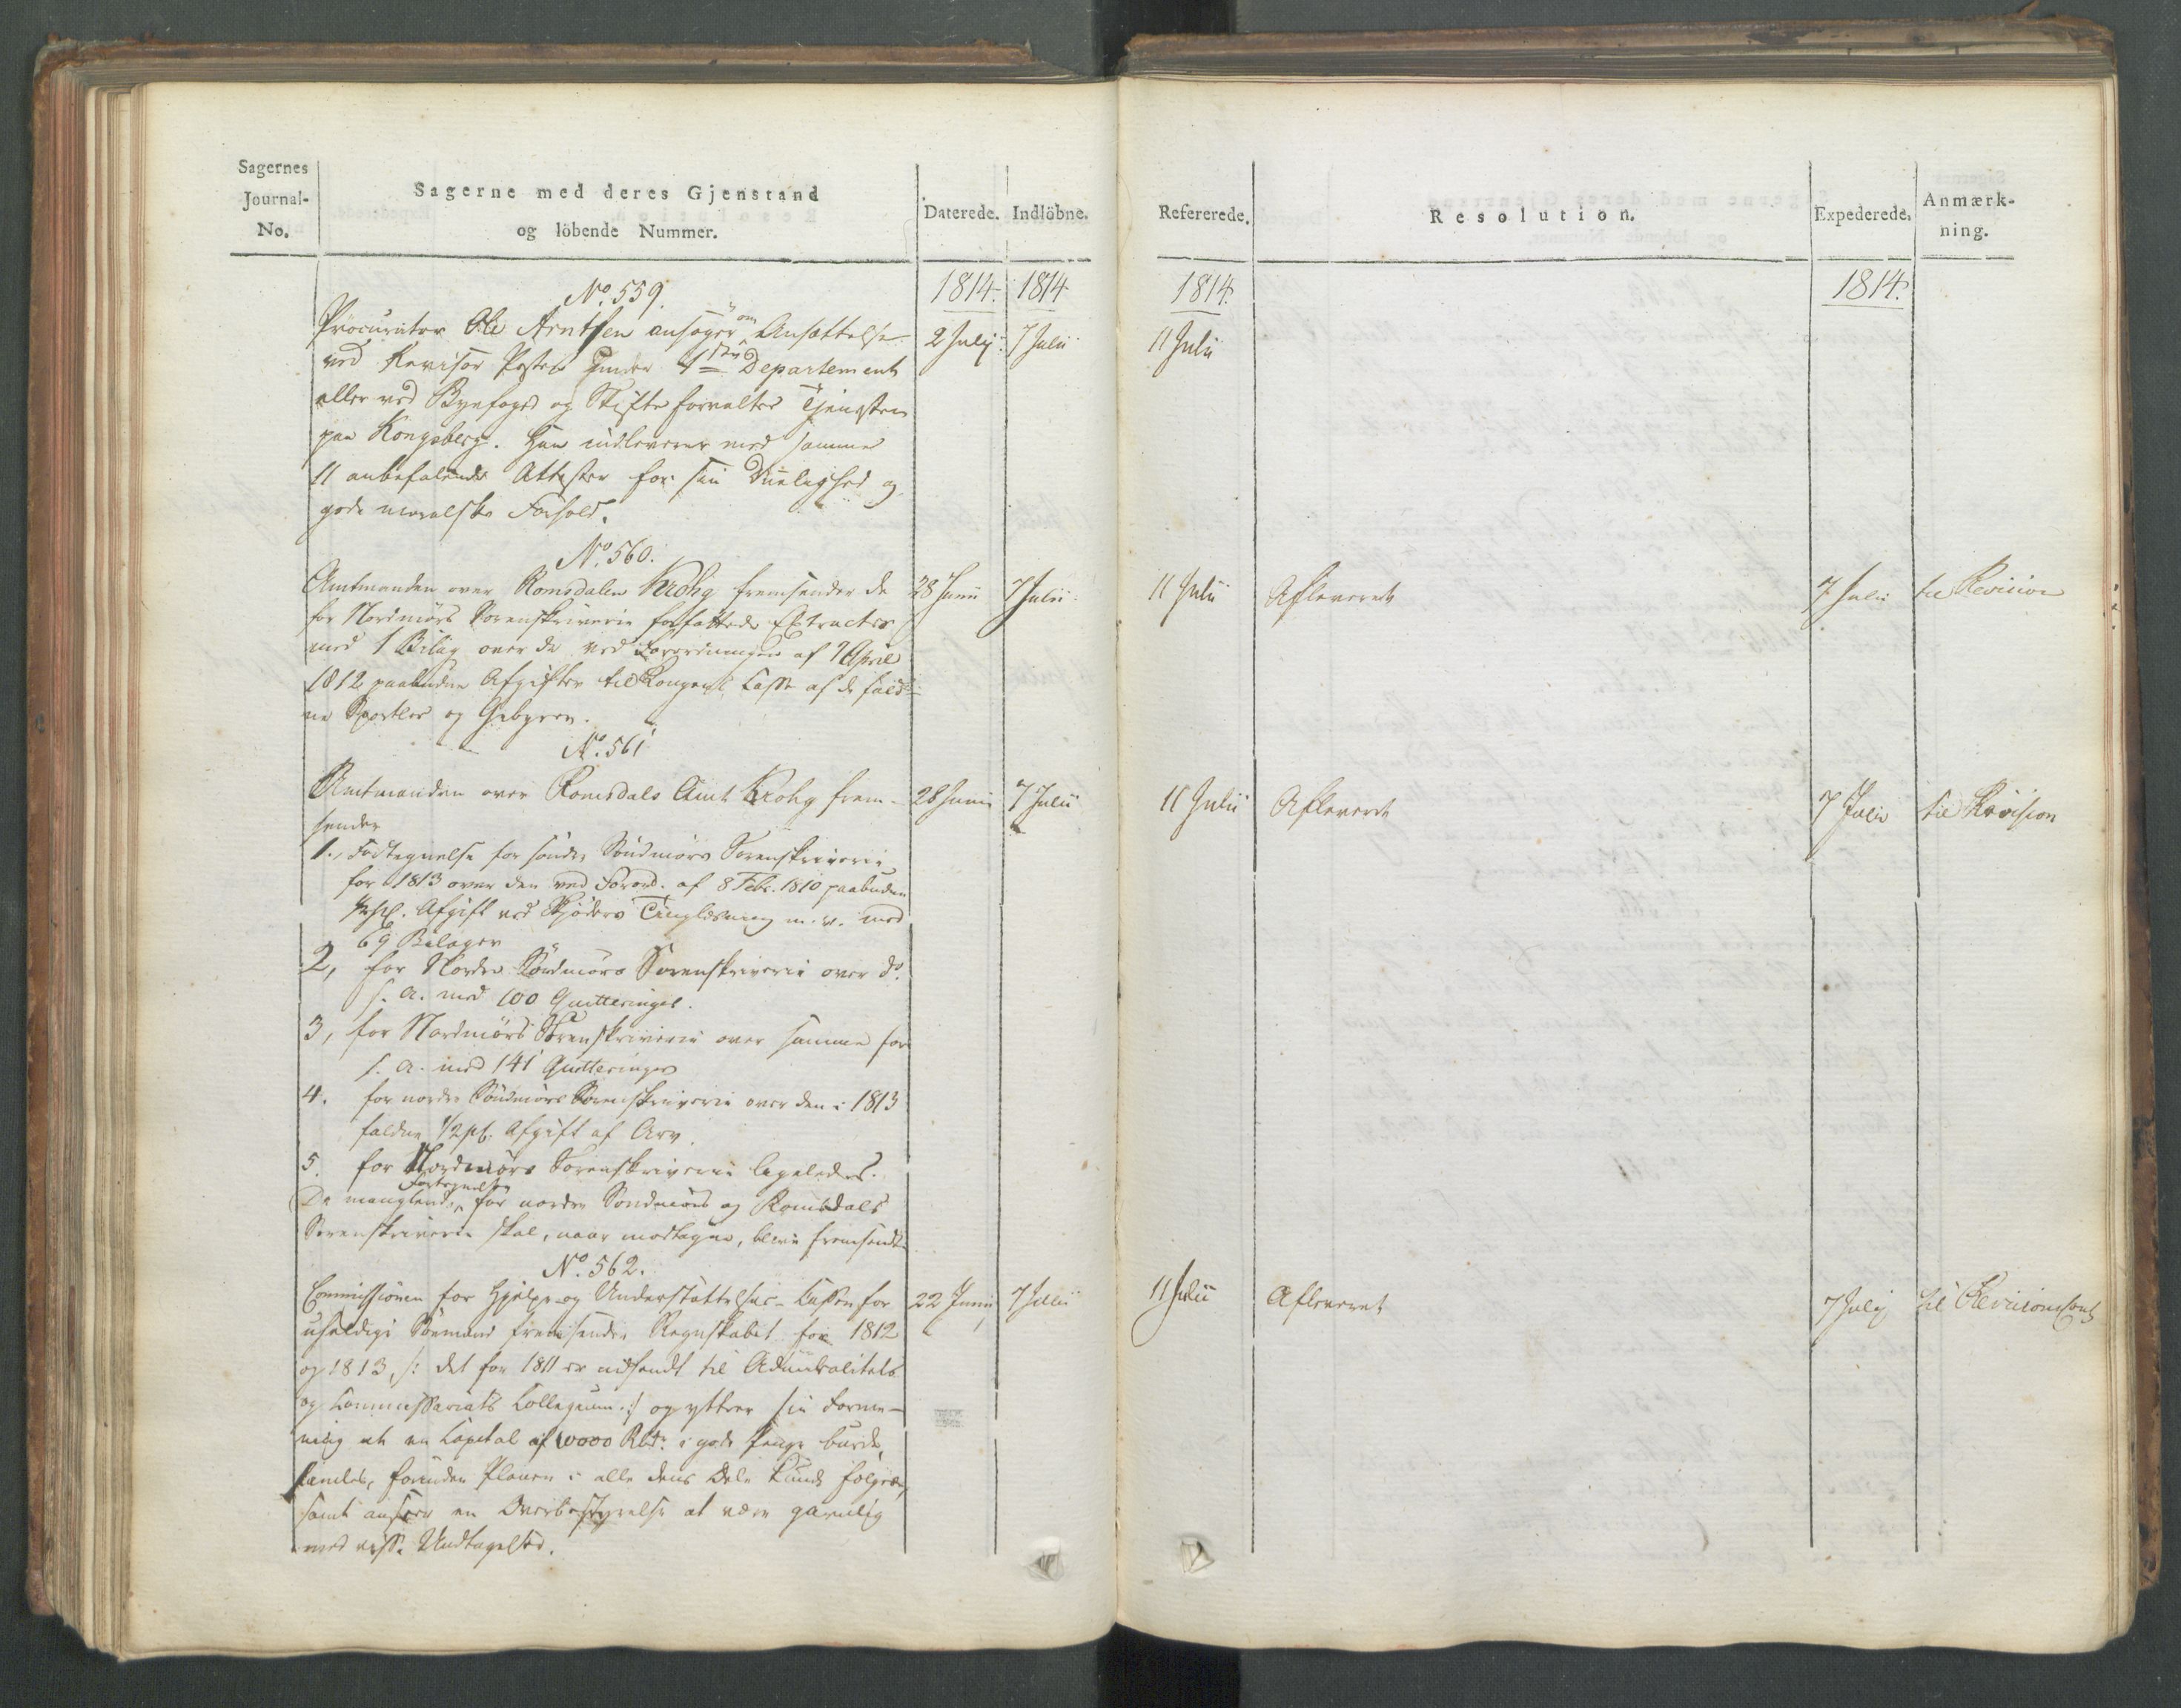 Sagernes
Journal-
No.
Sagerne med deres Gjenstand
og löbende Nummer.
Daterede.
Indlöbne.
Refererede.
Resolution.
Expederede.
Anmærk-
ning.
1814.
1814
1814.
1814.
No. 559.
Procurator Ole Arntsen ansøger om Ansættelse
ved Revisor Posten under 4de Departement
eller ved Byefoged og Skifteforvalter Tjenesten
paa Kongsberg. Han indleverer med samme
11 anbefalende Attester for sin Duelighed og
gode moralske Forhold.
2 Julij
7 Julii
11 Julii
No. 560.
Amtmanden over Romsdalen Krohg fremsender de
for Nordmörs Sorenskriverie forfattede Extracter
med 1 Bilag over de ved Forordningen af 9 April
1812 paabudne Afgifter til Kongens Casse af de fald-
ne Sportler og Gebyrer.
28 Junii
7 Julii
11 Julii
Afleveret
7 Julii
til Revision
No. 561
Amtmanden over Romsdals Amt Krohg frem-
sender
1., Fortegnelse for söndre Söndmörs Sorenskriverie
for 1813 over den ved Forord. af 8 Febr. 1810 paabudne
1/2 pC. Afgift ved Skjöders Tinglæsning m. v. med
69 Bilager
2, for Nordre Söndmörs Sorenskriverie over do.
f. a. med 100 Quitteringer.
3, for Nordmörs Sorenskriverie over samme for
f. a. med 141 Quitteringer
4. for nordre Söndmörs Sorenskriverie over den i 1813
faldne 1/2 pC. Afgift af Arv.
5. for Nordmörs Sorenskriverie ligeledes.
De manglende Fortegnelser for nordre Söndmörs og Romsdals
Sorenskriverie skal, naar modtagne, blive fremsendt.
28 Junii
7 Julii
11 Julii
Afleveret
7 Julii
til Revision
No. 562.
Commissionen for Hjelpe- og Understöttelses-Cassen for
uheldige Sömænd fremsender Regnskabet for 1812
og 1813, /: det for 1811 er indsendt til Admiralitets
og Commissariats Collegium :/ og yttrer sin Forme-
ning at en Capital af 10000 Rbdr. i gode Penge burde
samles, forinden Planen i alle dens Dele kunde fölges,
samt anseer en Overbestyrelse at være gavnlig
med visse Undtagelser.
22 Junii
7 Julii
11 Julii
Afleveret
7 Julij
til Revisions Cont